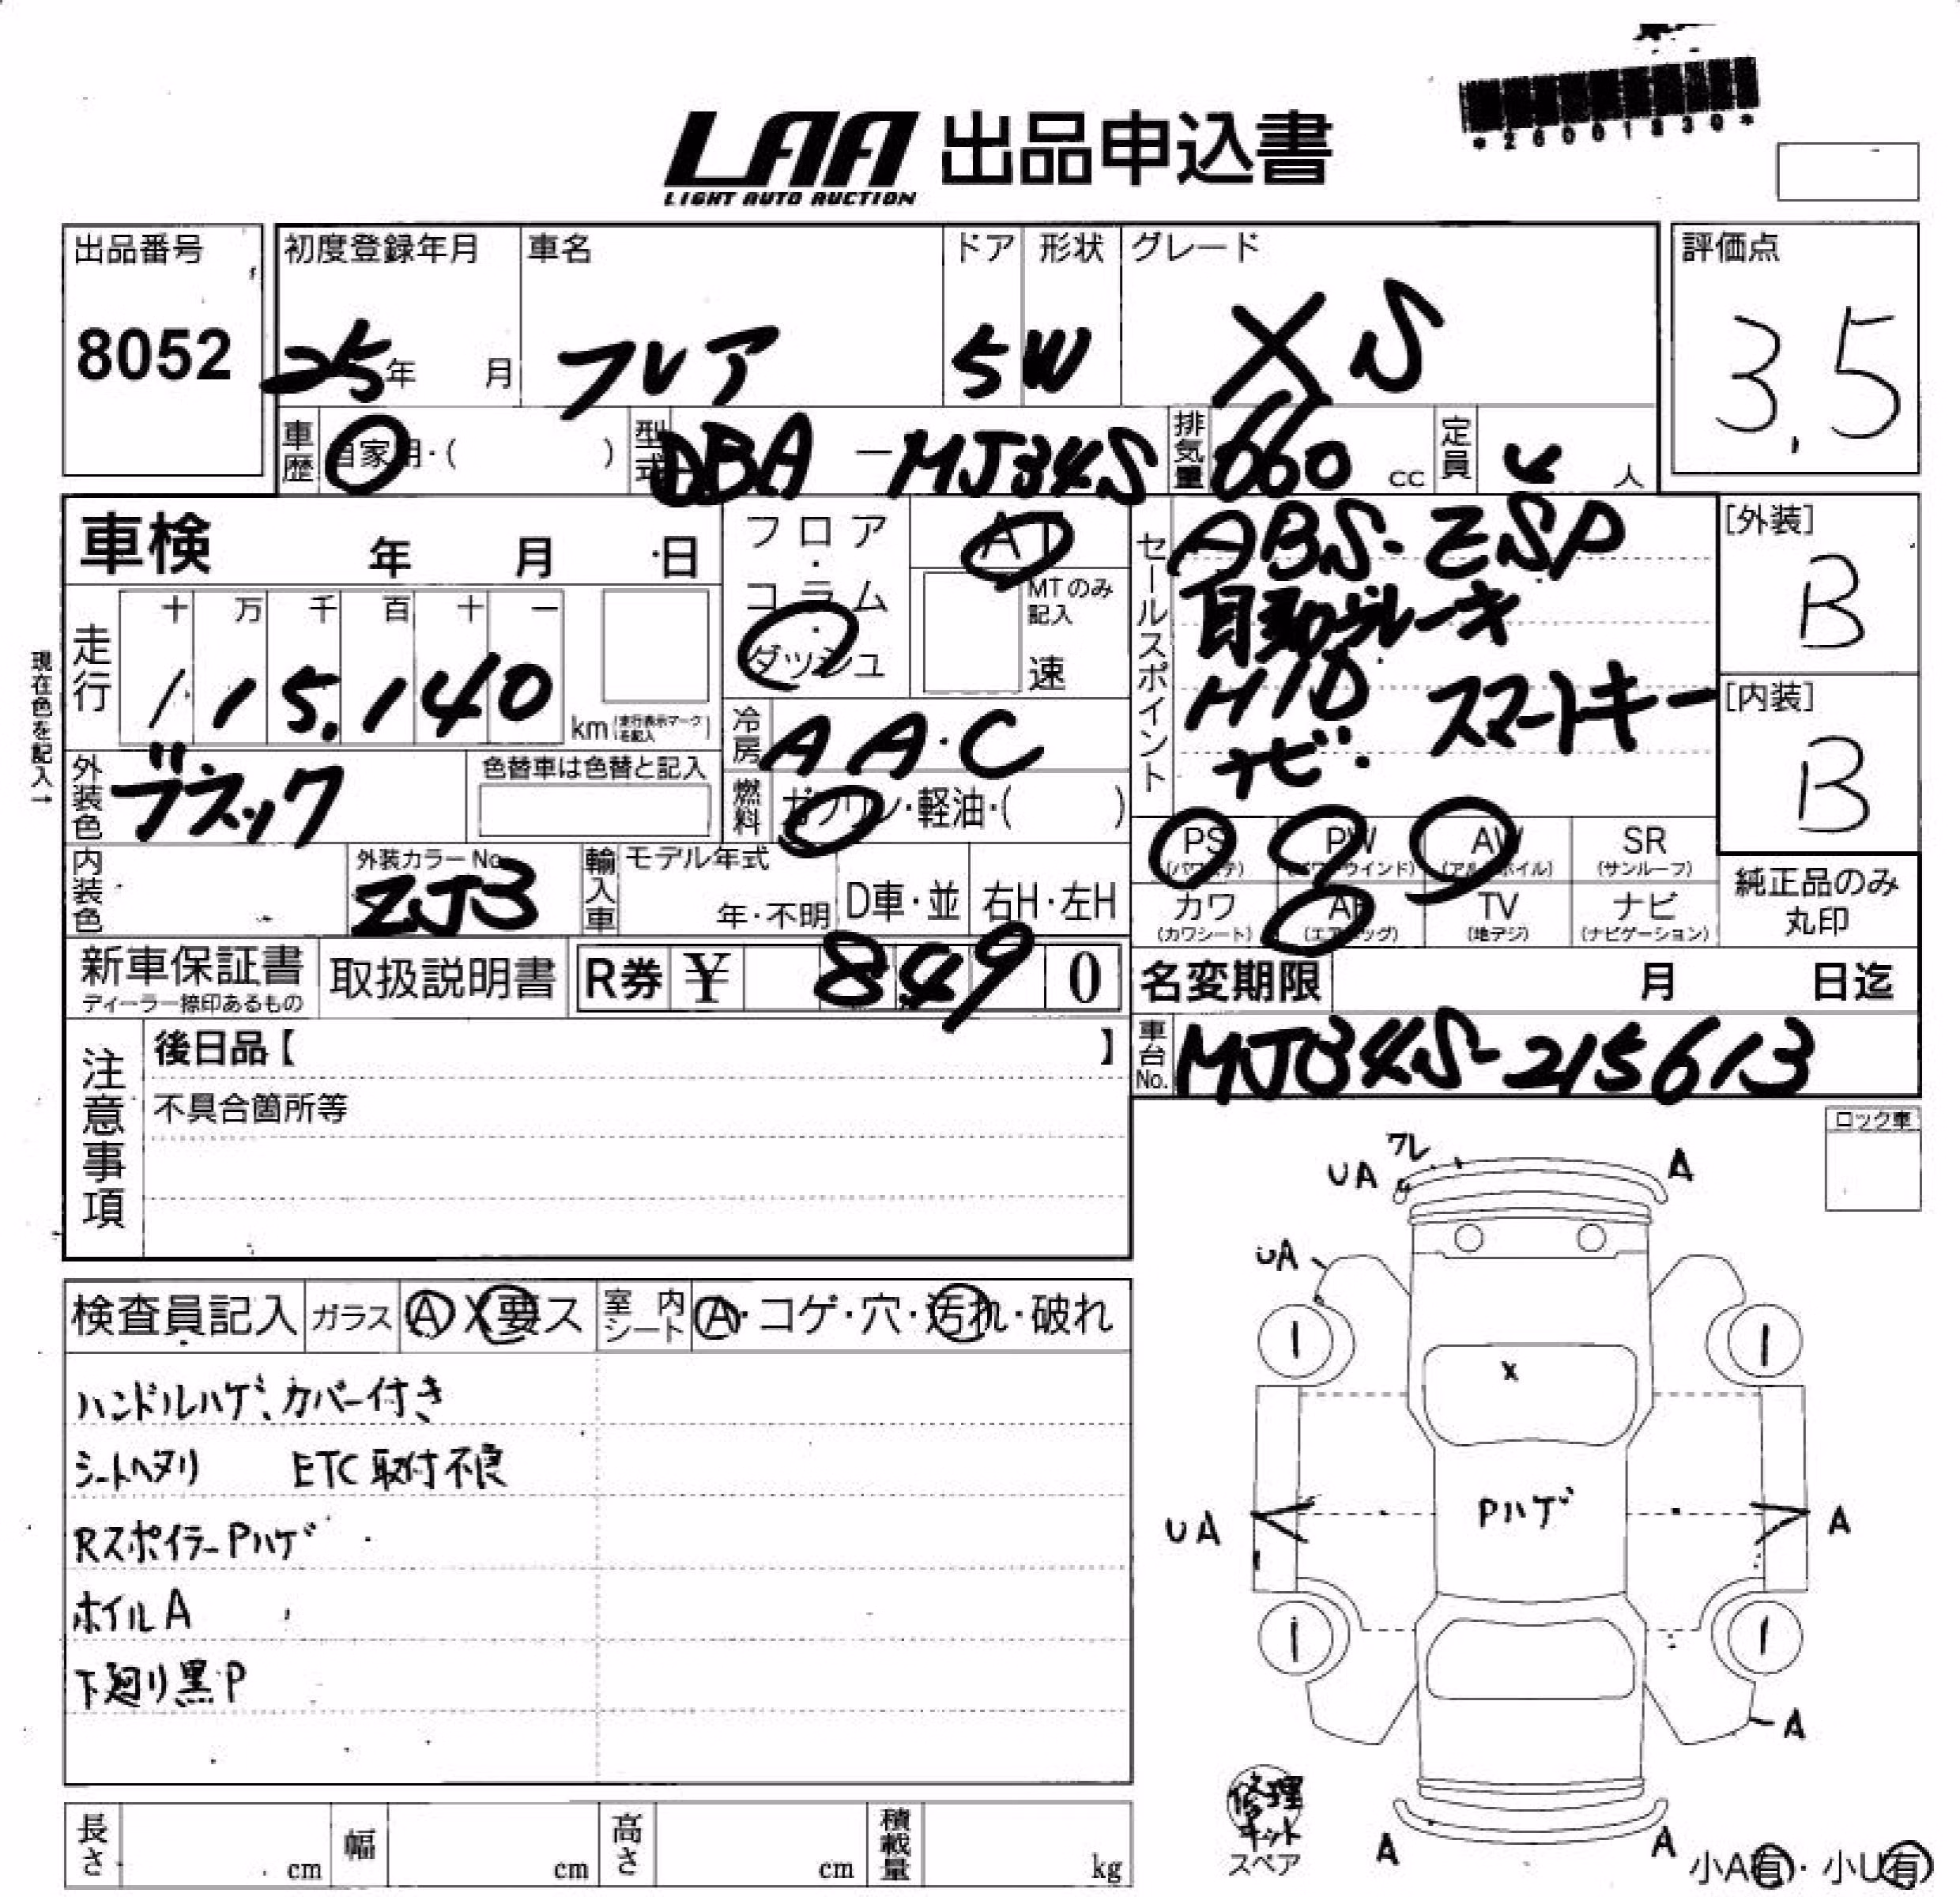 *26001830*
LAA 出品申込書
LIGHT AUTO AUCTION
出品番号 8052
初度登録年月 25年 月
車名 フレア
ドア 5
形状 W
グレード XS
評価点 3.5
車歴 自家用・( )
型式 DBA-MJ34S
排気量 660 cc
定員 4 人
車検 年 月 日
フロア・コラム・ダッシュ
AT
MTのみ記入
速
セールスポイント
ABS・ESP
自動ブレーキ
HID スマートキー
ナビ・
[外装] B
[内装] B
現在色を記入→
走行 十 万 千 百 十 一
115.140 km (走行表示マークを記入)
冷房 AA・C
外装色 ブラック
色替車は色替と記入
燃料 ガソリン・軽油・( )
PS (パワステ)
PW (パワーウインド)
AW (アルミホイル)
SR (サンルーフ)
カワ (カワシート)
AB (エアバッグ)
TV (地デジ)
ナビ (ナビゲーション)
純正品のみ丸印
内装色
外装カラーNo. ZJ3
輸入車 モデル年式 年・不明
D車・並
右H・左H
新車保証書
ディーラー捺印あるもの
取扱説明書
R券 ¥ 8490
名変期限 月 日迄
車台No. MJ34S-215613
注意事項
後日品【 】
不具合箇所等
ロック車
検査員記入 ガラス A X 要ス
室内シート A・コゲ・穴・汚れ・破れ
ハンドルハゲ、カバー付き
シートヘタリ ETC取付不良
RスポイラーPハゲ
ホイルA
下廻り黒P
ワレ
UA
A
UA
1
1
X
UA
Pハゲ
A
1
1
A
修理キット
スペア
A
A
小A有・小U有
長さ cm
幅 cm
高さ cm
積載量 kg